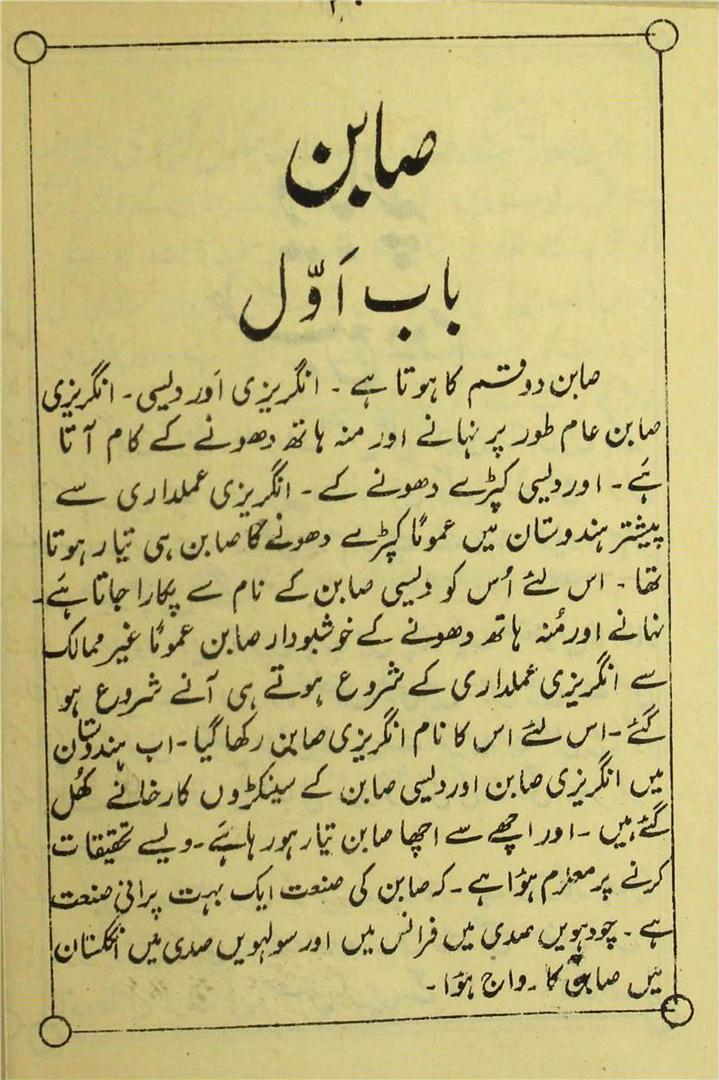 صابن
باب اَوّل
صابن دو قسم کا ہوتا ہے ۔ انگریزی اَور دیسی ۔ انگریزی
صابن عام طور پر نہانے اور منہ ہاتھ دھونے کے کام آتا
ہَے ۔ اور دیسی کپڑے دھونے کے ۔ انگریزی عملداری سے
پیشتر ہندوستان میں عموماً کپڑے دھونے کا صابن ہی تیار ہوتا
تھا ۔ اس لئے اُس کو دیسی صابن کے نام سے پکارا جاتا ہَے ۔
نہانے اور مُنہ ہاتھ دھونے کے خوشبودار صابن عموماً غیر ممالک
سے انگریزی عملداری کے شروع ہوتے ہی آنے شروع ہو
گئے ۔ اس لئے اس کا نام انگریزی صابن رکھا گیا ۔ اب ہندوستان
میں انگریزی صابن اور دیسی صابن کے سینکڑوں کارخانے کھُل
گئے ہیں ۔ اور اچھے سے اچھا صابن تیار ہو رہا ہَے ۔ ویسے تحقیقات
کرنے پر معلوم ہؤا ہے ۔ کہ صابن کی صنعت ایک بہت پرانی صنعت
ہے ۔ چودہویں صدی میں فرانس میں اور سولہویں صدی میں انگلستان
میں صابن کا رواج ہؤا ۔